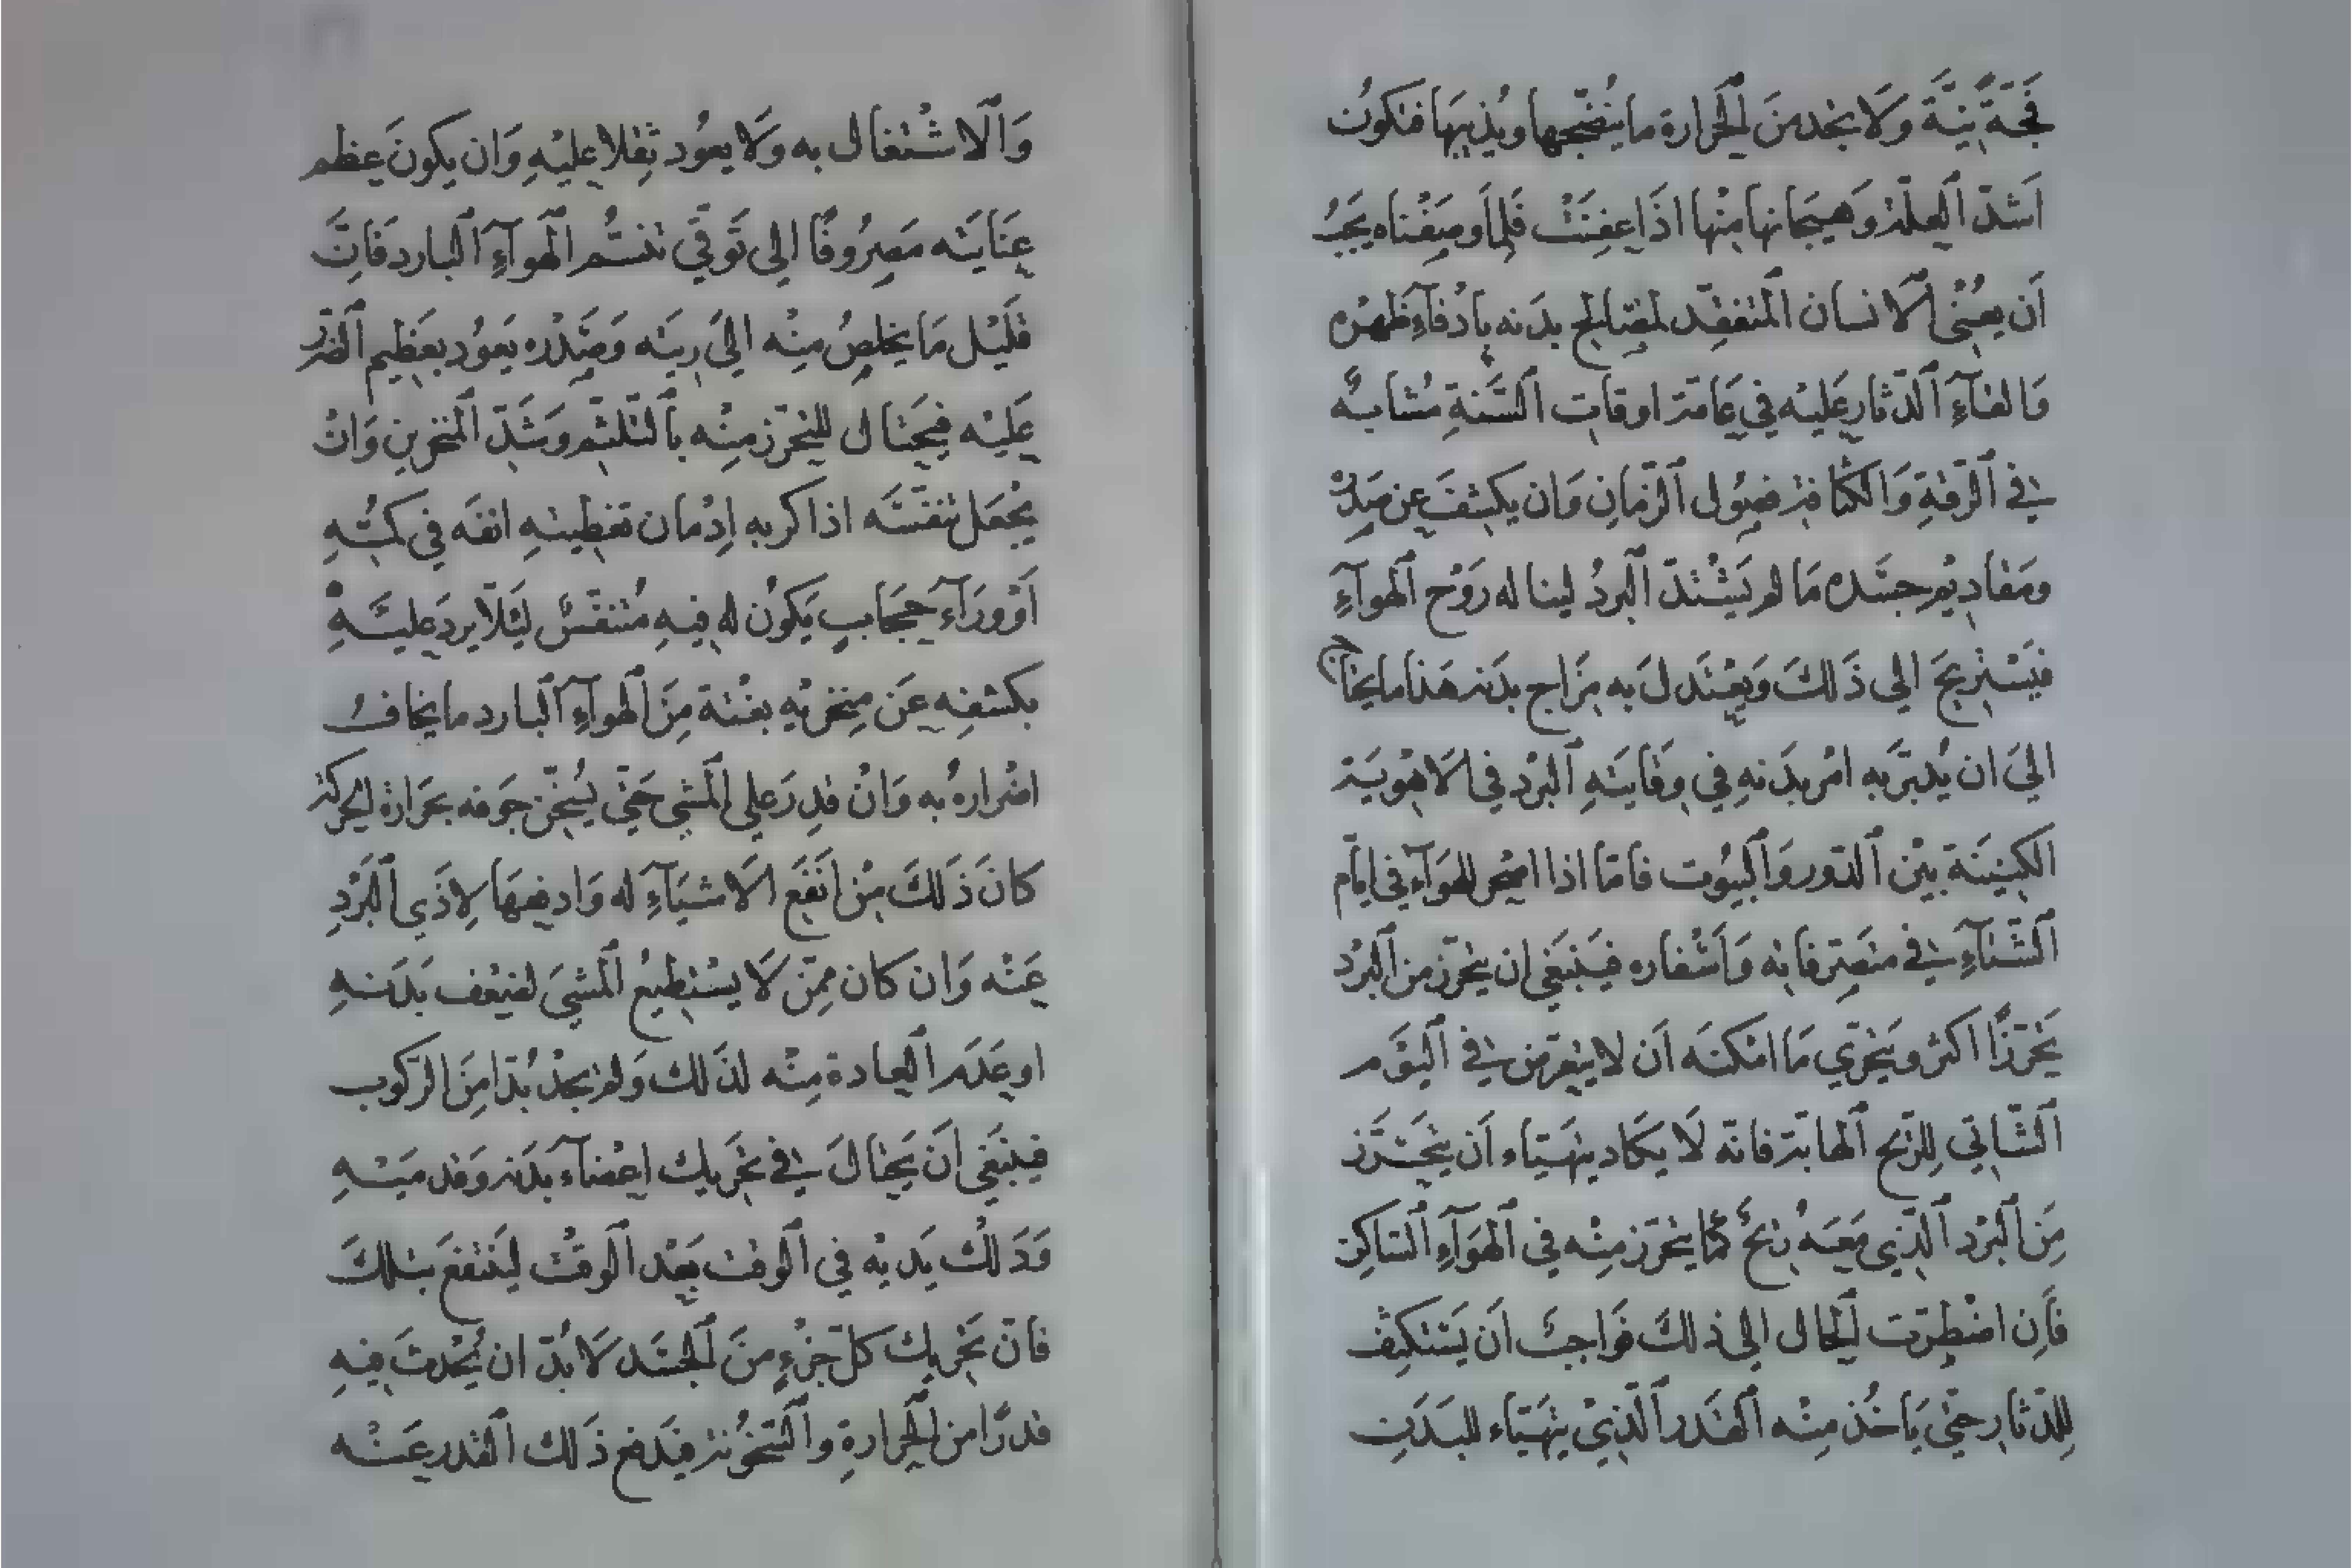 فَجَّةً نِيَّةً وَلَا يجد منَ الْحَرارة ما يُنضِّجها ويُذيبَها فتكونُ
اَشدّ الْعِلّة وَهيجانها مِنْها اذَا عفِنَتْ فَلِما وصَفْناه يَجبُ
اَن يعْنَى الانسان المتفقِّد لمصَالح بدَنه بادْفاءِ ظَهْره
وَالقآءِ الدّثار عَليْه في عَامّة اوقات السَّنةِ مُشابهُ
في الرّقةِ وَالكثافة فصُولى الزّمانِ وَان يكشفَ عن صَدره
ومَقاديْم جسَده مَا لم يَشْتدّ البردُ لينا له رَوْح الهوآءِ
فيَسْتريحَ الي ذَلكَ وَيعْتَدلَ به مزَاج بدَنه هَذا ما يحْتاج
اليَ ان يُدبّرَ به امْر بدَنهِ في وقَايتَهِ البرْد في الاهْويَة
الكنِينَة بيْن الدّور وَالبيُوت فامّا اذا اصْحر للهوَآءِ في ايّام
الشّتآءِ في متصَرّفاته وَاَسْفاره فيَنْبَغي ان يتحرّز من البرْد
تَحرّزًا اكثر ويَتحرّي مَا امْكنَه اَن لا يتعرّض في اليَوْم
الشّاتي لِلرّيح الهابّة فانّه لَا يكَاد يتهَيّاء اَن يتحَرَّز
مِنَ البَرْد الّذي مَعَهُ ريحٌ كمَا يتحَرّز مِنْه في الهَوَآءِ السّاكن
فَاِن اضْطِرّت الْحَال الي ذلكَ فوَاجبٌ اَن يَسْتكثِف
لِلدّثار حَتّي يَاخُذ مِنْه القَدر الّذيْ يتهَيّاء للبَدَن
وَالاشْتغال به وَلَا يعوُد ثقلا عليْهِ وَان يكونَ عظم
عِنَايَته مَصروُفًا الي تَوقّي تنسُّم الهَوآءِ البارد فَانَّ
قلَيْل مَا يخلصُ منْه اليَ ريَته وَصَدْره يَعوُد بعَظيم الضّرَر
عَليْه فيَحْتال للتحرّز مِنْه بالتّلثّم وَشَدّ المنخرين وَانْ
يجْعَل تنفّسَه اذا كربه اِدْمان تغطِيتهِ انفَه في كمّهِ
اَوْ ورَآءَ حجَابٍ يَكوُن له فيهِ مُتنفّسٌ ليَلّا يرد عَليْهِ
بكشفِه عَن منخريْهِ بغْتة مِنَ الهوآءِ البارد ما يخافُ
اضْراره به وَانْ قدِرَ علي المَشي حَتّي يُسَخّن جوَفه بحَرارة الحركة
كانَ ذَلكَ مِن اَنفَعَ الاشيَآءِ له وَادفعهَا لِاذَي البَرْدِ
عَنْه وَان كان ممّن لَا يسْتطيعُ المَشيَ لضعْف بَدَنهِ
اوعَدَم العادة مِنْه لذَلك وَلم يجدْ بُدّا مِنَ الرّكوب
فينبَغي اَن يَحْتالَ في تحَريك اعْضاء بدَنه وقدمَيْهِ
وَدَلْك يَديْه في الوقت بَعْد الوقْت ليَنْتفعَ بذلكَ
فانّ تحَريك كلّ جزْءٍ منَ الجسَد لَا بُدّ ان يُحْدثَ فيهِ
قدرًا من الحَرارةِ والسّخوُنة فيَدفع ذَلك القدر عَنْه